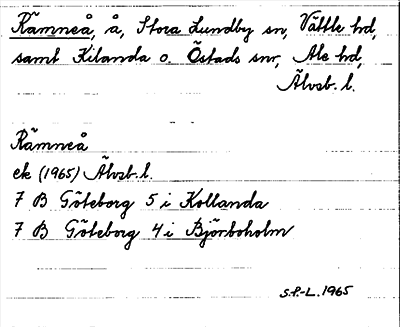 Rämneå, å, Stora Lundby sn, Vättle hd,
samt Kilanda o. Östads snr, Ale hd,
Älvsb. l.
Rämneå
ek (1965) Älvsb. l.
7 B Göteborg 5 i Kollanda
7 B Göteborg 4 i Björboholm
S.P.-L. 1965